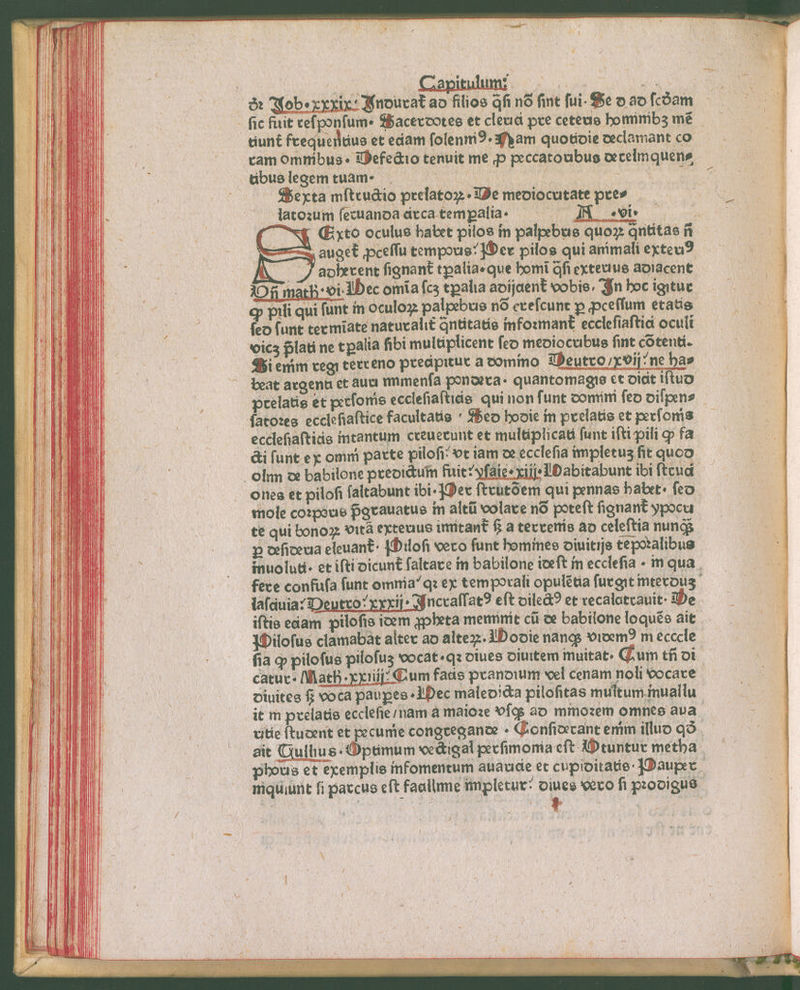 Capitulum:
dꝛ Job.xxxix: Induraꝉ ad filios q̃ſi nō ſint ſui. Se d ad ſcdam
ſic fuit reſponſum. Sacerdotes et clerici pre ceteris hominibꝫ mē
tiunt̄ frequentius et eciam ſolenniꝰ. Nam quotidie declamant co
ram omnibus. Defectio tenuit me ꝓ peccatoribus derelinquen⸗
tibus legem tuam.
Sexta inſtructio prelatoꝝ. De mediocritate pre⸗
latorum ſecuanda circa temꝑalia. A .vi.
SExto oculus habet pilos in palpebris quoꝝ q̃ntitas nō
auget̄ ꝓceſſu temporis: Per pilos qui animali exteriꝰ
adherent ſignant̄ tꝑalia.que homi q̃ſi exterius adiacent
Vñ math.vi. Hec omīa ſcꝫ tꝑalia adijcient̄ vobis. In hoc igitur
ꝙ pili qui ſunt in oculoꝝ palpebris nō creſcunt ꝑ ꝓceſſum etatis
ſed ſunt termīate naturalit̄ q̃ntitatis informant̄ eccleſiaſtici oculi
vicꝫ p̄lati ne tꝑalia ſibi multiplicent ſed mediocribus ſint cōtenti.
Si enim regi terreno precipitur a domino Deutro/xvij: ne ha⸗
beat argenti et auri immenſa pondera. quantomagis et dicit iſtud
prelatis et perſonis eccleſiaſticis qui non ſunt domini ſed diſpen⸗
ſatores eccleſiaſtice facultatis : Sed hodie in prelatis et perſonis
eccleſiaſticis intantum creuerunt et multiplicati ſunt iſti pili ꝙ fa
cti ſunt ex omni parte piloſi: vt iam de eccleſia impletuꝫ ſit quod
olim de babilone predictum fuit: yſaie.xiij. Habitabunt ibi ſtruci
ones et piloſi ſaltabunt ibi. Per ſtrutōem qui pennas habet. ſed
mole corporis p̄grauatus in altū volare nō poteſt ſignant̄ ypocri
te qui bonoꝝ vitā exterius imitant̄ ſꝫ a terrenis ad celeſtia nunqꝫ
ꝑ deſideria eleuant̄. Piloſi vero ſunt homines diuitijs tēporalibus
inuoluti. et iſti dicunt̄ ſaltare in babilone ideſt in eccleſia . in qua
fere confuſa ſunt omnia: qꝛ ex temporali opulētia ſurgit interduꝫ
laſciuia: Deutro: xxxij. Incraſſatꝰ eſt dilectꝰ et recalcitrauit. De
iſtis eciam piloſis idem ꝓpheta meminit cū de babilone loquēs ait
Piloſus clamabat alter ad alteꝝ. Hodie nanqꝫ videmꝰ in eccle
ſia ꝙ piloſus piloſuꝫ vocat.qꝛ diues diuitem inuitat. Cum tñ di
catur. Math.xxiiij: Cum facis prandium vel cenam noli vocare
diuites ſꝫ voca pauꝑes. Hec maledicta piloſitas multum inualu
it in prelatis eccleſie/nam a maiore vſqꝫ ad minorem omnes aua
ritie ſtudent et pecunie congregande . Conſiderant enim illud qd̄
ait Tullius. Optimum vectigal perſimonia eſt Vtuntur metha
phoris et exemplis infomentum auaricie et cupiditatis. Pauper
inquiunt ſi parcus eſt facilime impletur: diues vero ſi prodigus